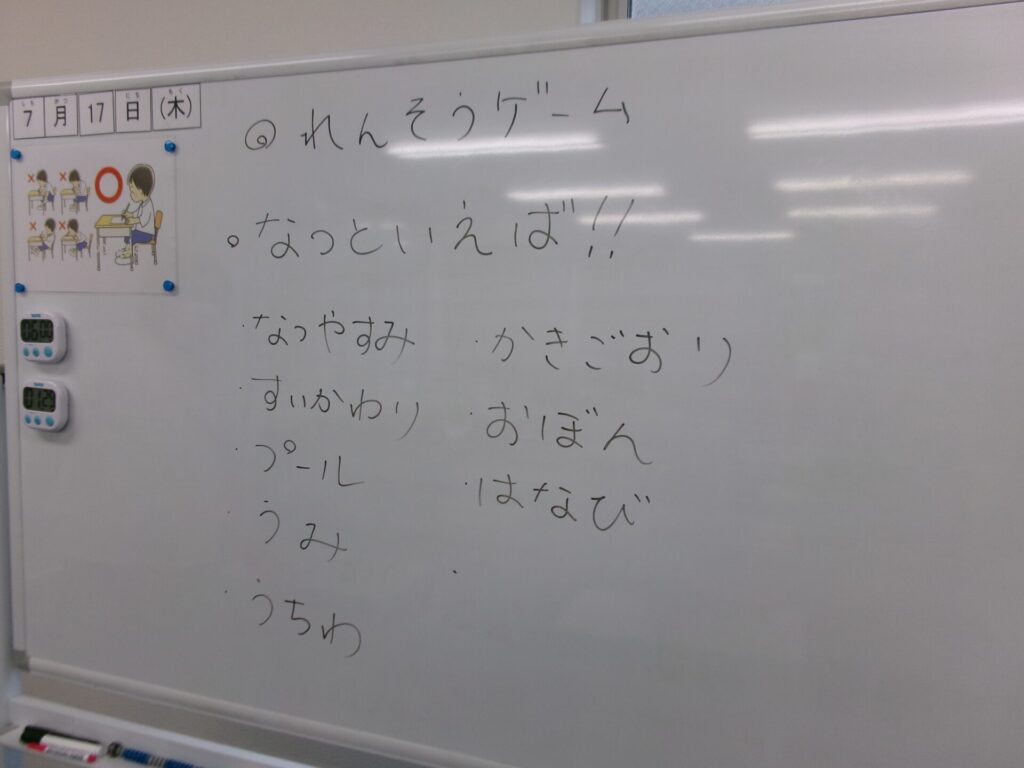 7月17日(木)
しち がつ にち もく
◎れんそうゲーム
○なつといえば!!
・なつやすみ
・すいかわり
・プール
・うみ
・うちわ
・かきごおり
・おぼん
・はなび
・